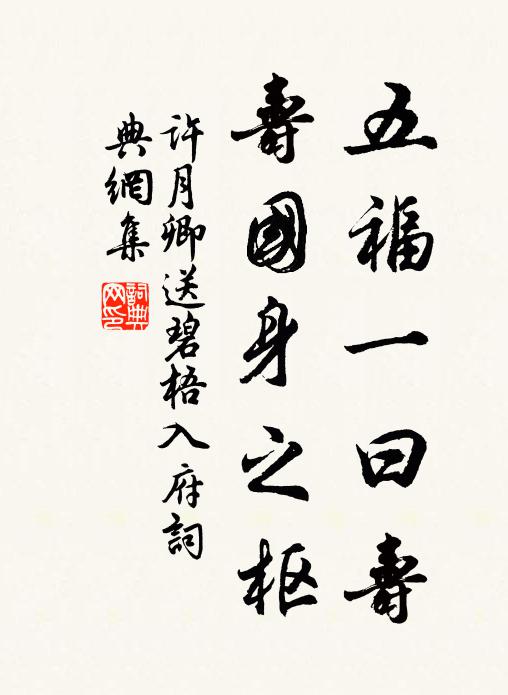 五福一曰壽
壽國身之枢
许月卿送碧梧入府詞
典網集
詞典
网印